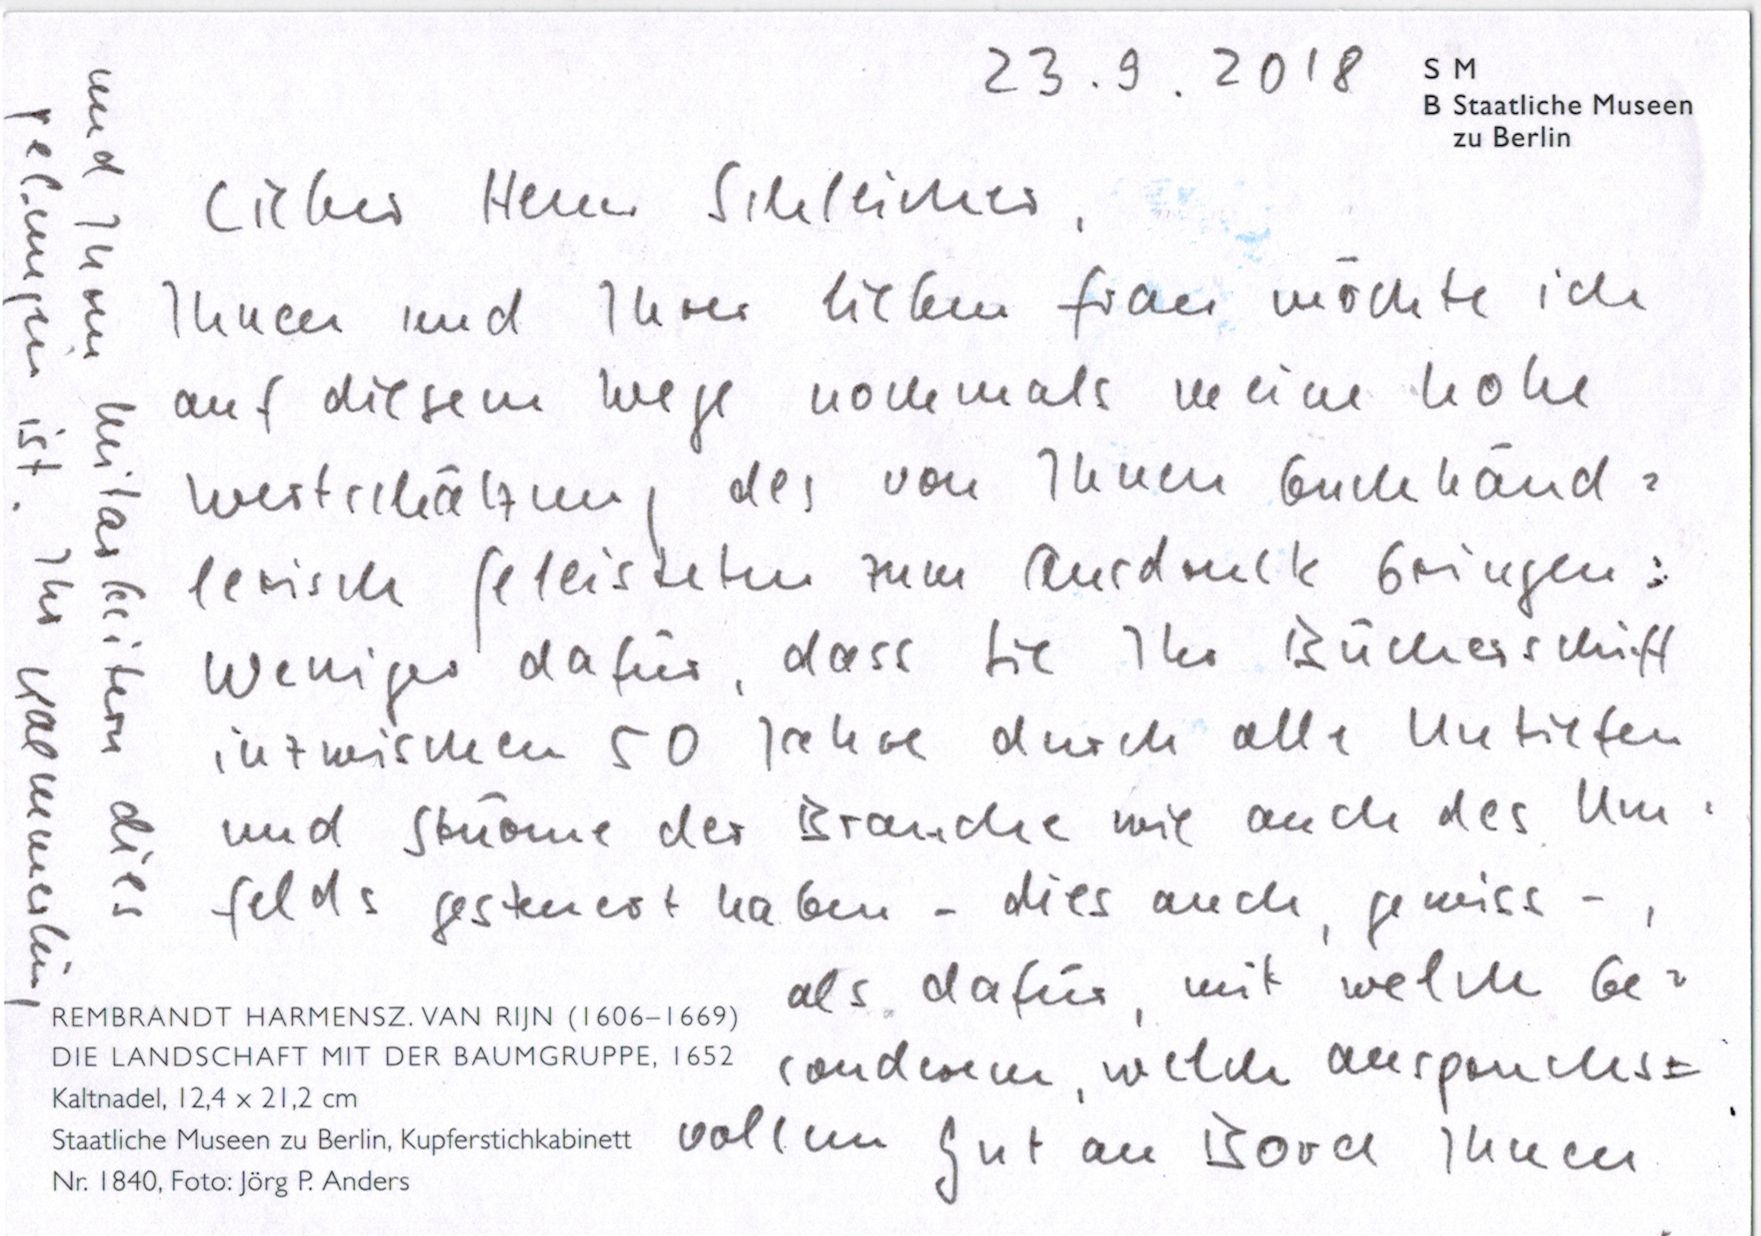 23.9.2018
S M
B Staatliche Museen
zu Berlin
Lieber Herr Schleicher,
Ihnen und Ihrer lieben Frau möchte ich
auf diesem Wege nochmals meine hohe
Wertschätzung des von Ihnen buchhänd=
lerisch Geleisteten zum Ausdruck bringen:
Weniger dafür, dass Sie Ihr Bücherschiff
inzwischen 50 Jahre durch alle Untiefen
und Stürme der Branche wie auch des Um-
felds gesteuert haben - dies auch, gewiss -,
als dafür, mit welch be=
sonderem, welch anspruchs=
vollem Gut an Bord Ihnen
und Ihren Mitarbeitern dies
gelungen ist. Ihr
REMBRANDT HARMENSZ. VAN RIJN (1606–1669)
DIE LANDSCHAFT MIT DER BAUMGRUPPE, 1652
Kaltnadel, 12,4 x 21,2 cm
Staatliche Museen zu Berlin, Kupferstichkabinett
Nr. 1840, Foto: Jörg P. Anders